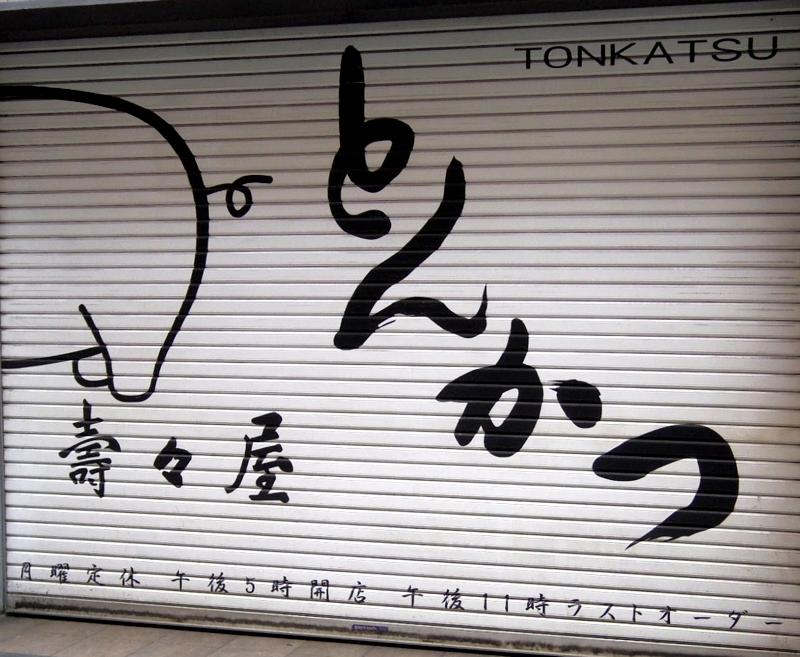 TONKATSU
とんかつ
壽々屋
月曜定休 午後5時開店 午後11時ラストオーダー